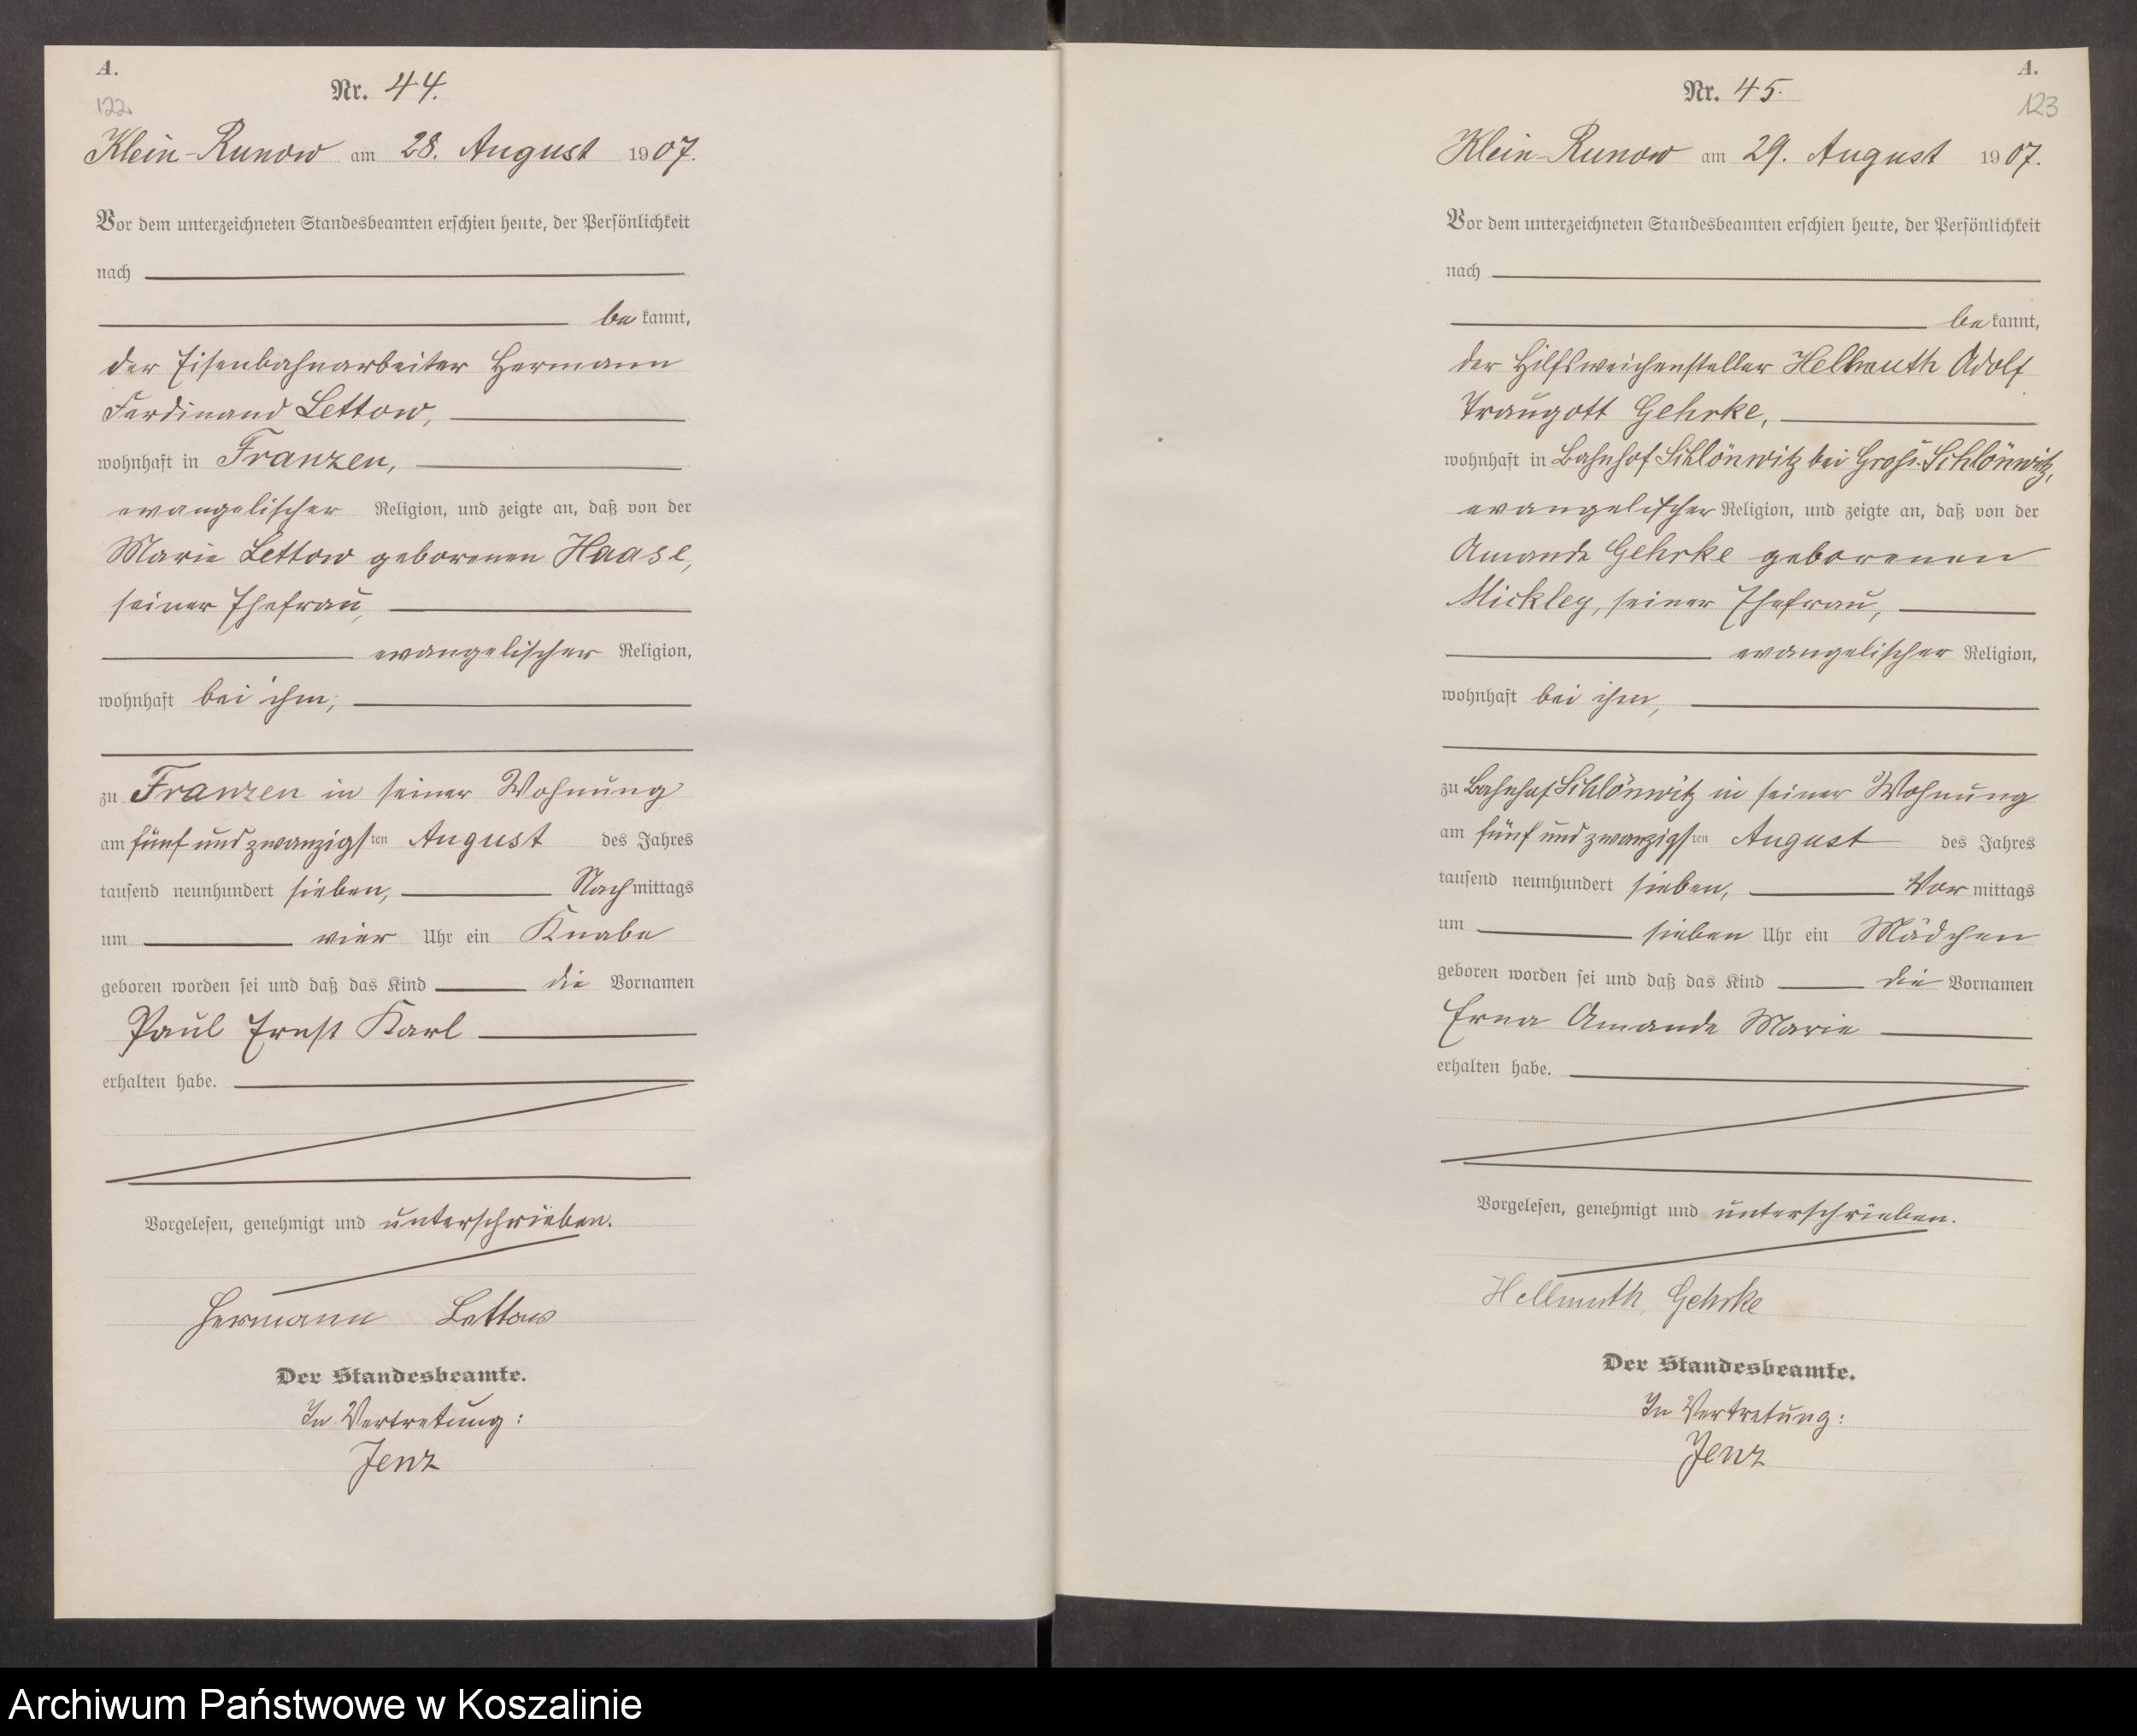 A.
122.
Nr. 44.
Klein-Runow am 28. August 1907.
Vor dem unterzeichneten Standesbeamten erschien heute, der Persönlichkeit
nach
be kannt,
der Eisenbahnarbeiter Hermann
Ferdinand Lettow,
wohnhaft in Franzen,
evangelischer Religion, und zeigte an, daß von der
Marie Lettow geborenen Haase,
seiner Ehefrau,
evangelischer Religion,
wohnhaft bei ihm,
zu Franzen in seiner Wohnung
am fünf und zwanzigsten August des Jahres
tausend neunhundert sieben, Nachmittags
um vier Uhr ein Knabe
geboren worden sei und daß das Kind die Vornamen
Paul Ernst Karl
erhalten habe.
Vorgelesen, genehmigt und unterschrieben.
Hermann Lettow
Der Standesbeamte.
In Vertretung:
Jenz
A.
123
Nr. 45.
Klein-Runow am 29. August 1907.
Vor dem unterzeichneten Standesbeamten erschien heute, der Persönlichkeit
nach
be kannt,
der Hilfsweichensteller Hellmuth Adolf
Traugott Gehrke,
wohnhaft in Bahnhof Schlönwitz bei Groß-Schlönwitz,
evangelischer Religion, und zeigte an, daß von der
Amande Gehrke geborenen
Mickley, seiner Ehefrau,
evangelischer Religion,
wohnhaft bei ihm,
zu Bahnhof Schlönwitz in seiner Wohnung
am fünf und zwanzigsten August des Jahres
tausend neunhundert sieben, Vormittags
um sieben Uhr ein Mädchen
geboren worden sei und daß das Kind die Vornamen
Erna Amande Marie
erhalten habe.
Vorgelesen, genehmigt und unterschrieben.
Hellmuth Gehrke
Der Standesbeamte.
In Vertretung:
Jenz
Archiwum Państwowe w Koszalinie